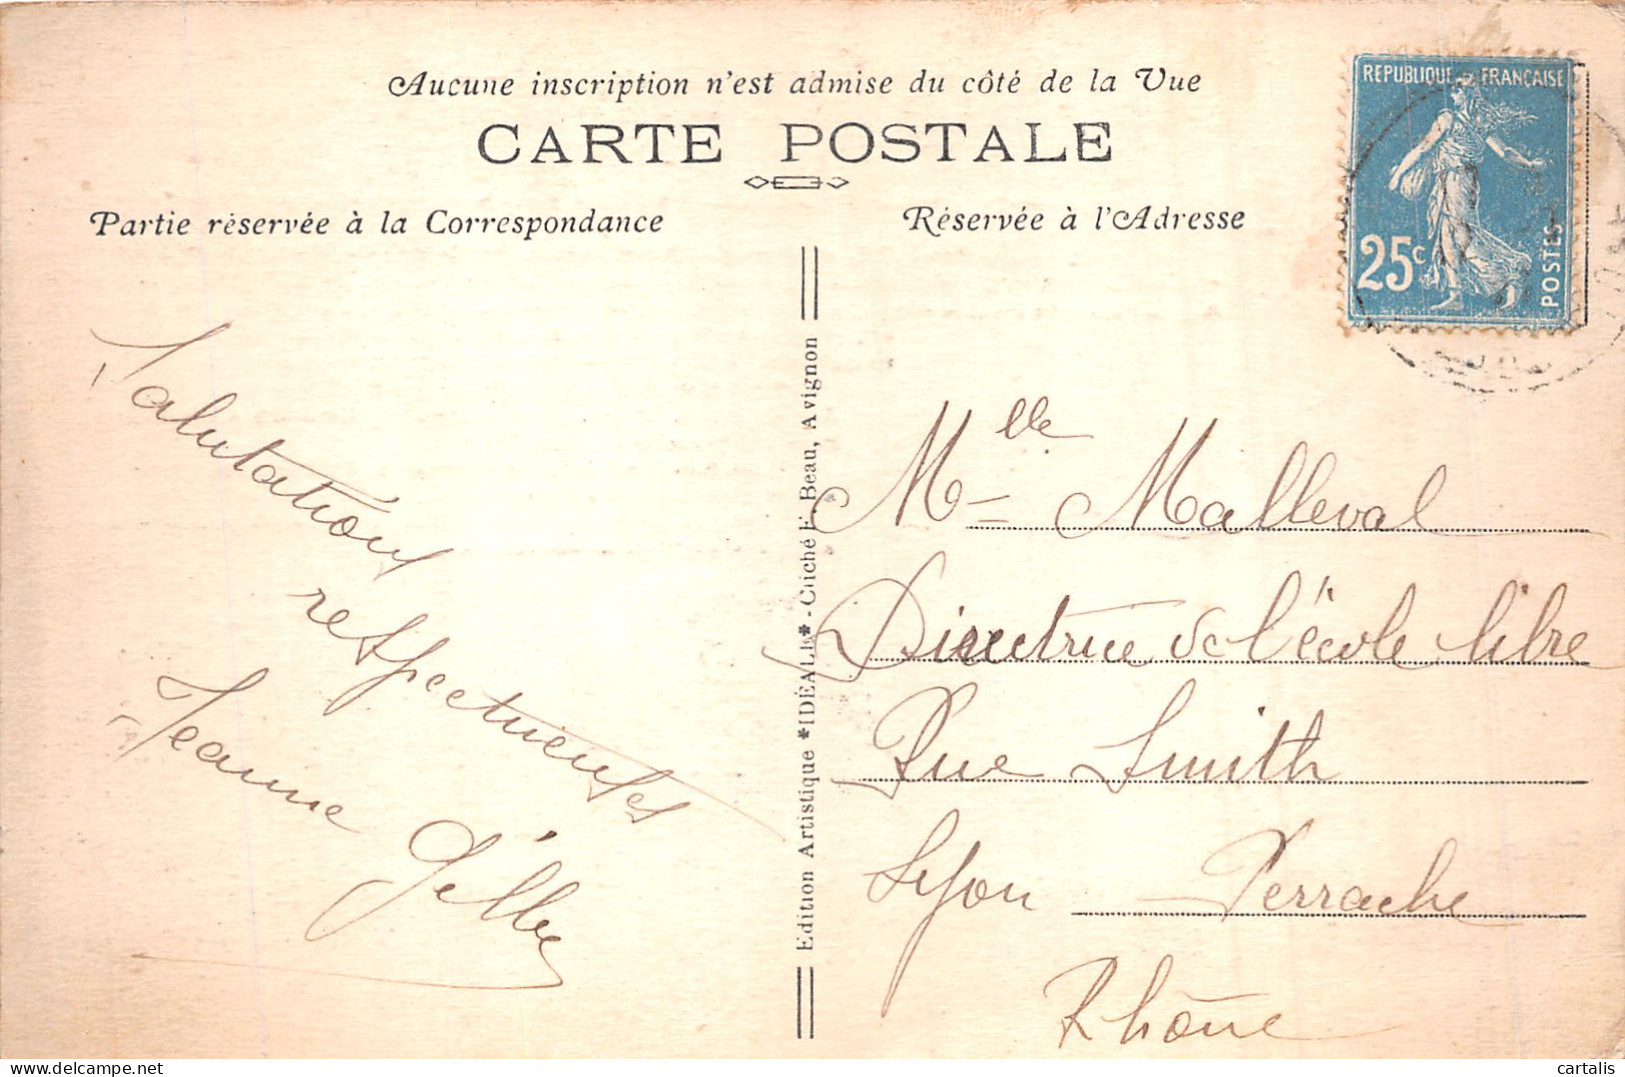 Aucune inscription n'est admise du côté de la Vue
CARTE POSTALE
Partie réservée à la Correspondance
Réservée à l'Adresse
REPUBLIQUE FRANÇAISE
25c
POSTES
Salutations
respectueuses
Jeanne Gélibe
Edition Artistique *IDÉALE* - Cliché F. Beau, Avignon
Mlle Malleval
Directrice de l'école libre
Rue Smith
Lyon Perrache
Rhône
cartalis
delcampe.net